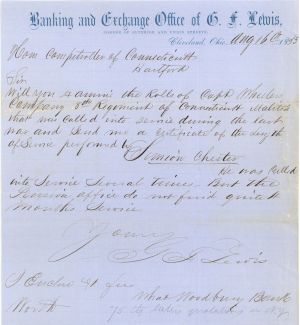 Banking and Exchange Office of G. F. Lewis,
CORNER OF SUPERIOR AND UNION STREETS,
Cleveland, Ohio, Aug 16th 1855
Hon Comptroller of Connecticutt
Hartford
Sir
Will you Examine the Rolls of Capt Wheeler
Company 8th Regiment of Connecticutt Malitia
that was Called into service during the last
war and Send me a Certificate of the length
of Service performed by Simeon Chester
He was Called
into Service Several times. But the
Pension office do not find quite
Months Service
Yours
G F Lewis
I Enclose $1 fee
What Woodbury Bank
Worth